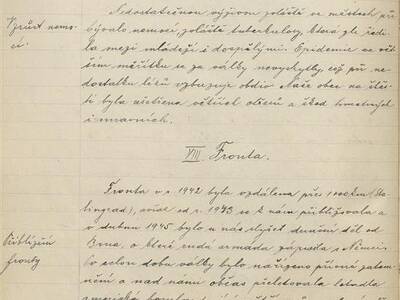 Vzrůst nemo-
cí.
Nedostatečnou výživou zvláště ve městech při
bývalo nemocí, zvláště tuberkulosy, která zle řádi
la mezi mládeží i dospělými. Epidemie ve vět
ším měřítku se za války nevyskytly, což při ne
dostatku léků vzbuzuje obdiv. Naše obec na štěs
tí byla ušetřena větších otřesů a škod hmotných
i mravních.
VIII Fronta.
Fronta v r. 1942 byla vzdálena přes 1000 km (Sta
lingrad), avšak od r. 1943 se k nám přibližovala a
v dubnu 1945 bylo u nás slyšet dunění děl od
Přiblížení
fronty
Brna, o které rudá armáda zápasila s Němci.
Po celou dobu války bylo nařízeno přísné zatem
nění a nad námi občas přeletovala letadla
americká